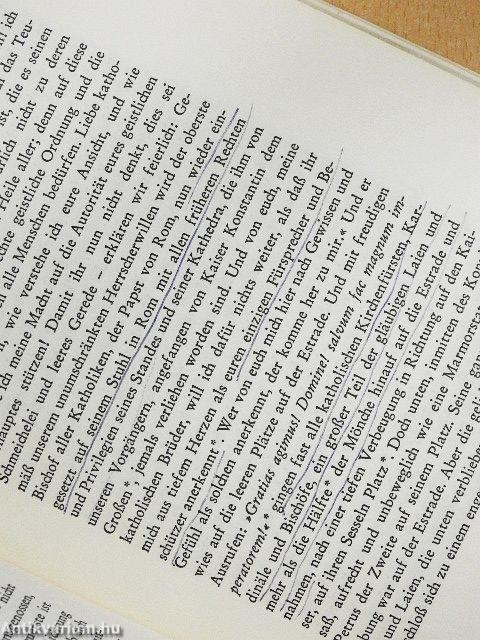 ich
das Teu-
ist, die es seinen
nicht zu deren
Heile aller, denn auf diese
ohne geistliche Ordnung und die
alle Menschen bedürfen. Liebe katho-
wie verstehe ich eure Ansicht, und wie
ich meine Macht auf die Autorität eures geistlichen
Hauptes stützen! Damit ihr nun nicht denkt, dies sei
Schneidelei und leeres Gerede – erklären wir feierlich: Ge-
mäß unserem unumschränkten Herrscherwillen wird der oberste
Bischof aller Katholiken, der Papst von Rom, nun wieder ein-
gesetzt auf seinem Stuhl in Rom mit allen früheren Rechten
und Privilegien seines Standes und seiner Kathedra, die ihm von
unseren Vorgängern, angefangen von Kaiser Konstantin dem
Großen*, jemals verliehen worden sind. Und von euch, meine
katholischen Brüder, will ich dafür nichts weiter, als daß ihr
mich aus tiefem Herzen als euren einzigen Fürsprecher und Be-
schützer anerkennt* Wer von euch mich hier nach Gewissen und
Gefühl als solchen anerkennt, der komme her zu mir.« Und er
wies auf die leeren Plätze auf der Estrade. Und mit freudigen
Ausrufen: »Gratias agimus! Domine! salvum fac magnum im-
peratorem!«* gingen fast alle katholischen Kirchenfürsten, Kar-
dinäle und Bischöfe, ein großer Teil der gläubigen Laien und
mehr als die Hälfte* der Mönche hinauf auf die Estrade und
nahmen, nach einer tiefen Verbeugung in Richtung auf den Kai-
ser, auf ihren Sesseln Platz* Doch unten, inmitten des Konz
saß, aufrecht und unbeweglich wie eine Marmorsta
trus der Zweite auf seinem Platz. Seine gan
bung war auf der Estrade. Aber die geli
und Laien, die unten verblieben
schloß sich zu einem enge
nicht
Genossen,
ist
Antikvarium.hu